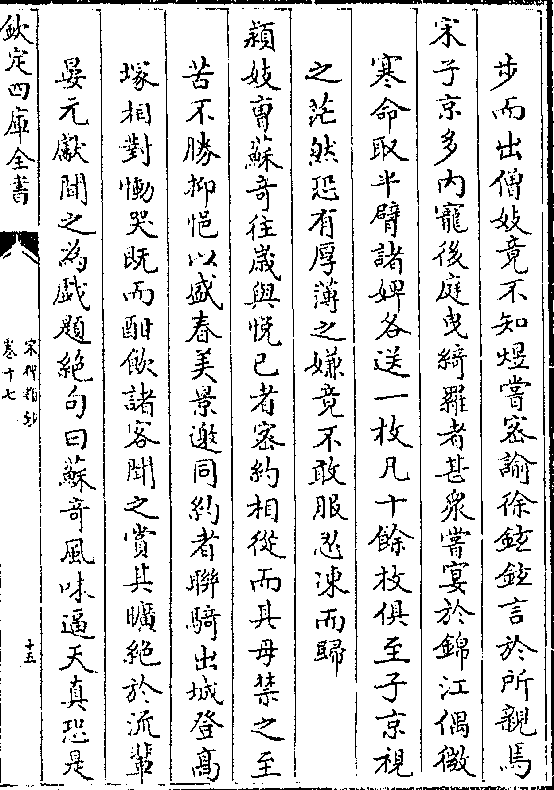 步而出僧妓竟不知煜嘗密諭徐鉉鉉言於所親焉
宋子京多内寵後庭曳綺羅者甚衆嘗宴於錦江偶微
寒命取半臂諸婢各送一枚凡十餘枚俱至子京視
之茫然恐有厚薄之嫌竟不敢服忍凍而歸
潁妓曹蘇奇往歲與悅已者密約相從而其母禁之至
苦不勝抑悒以盛春美景邀同約者聯騎出城登高
塚相對慟哭既而酣飲諸客聞之賞其曠絶於流輩
晏元獻聞之為戲題絶句曰蘇奇風味逼天真恐是
欽定四庫全書
宋稗類鈔
卷十七
十五